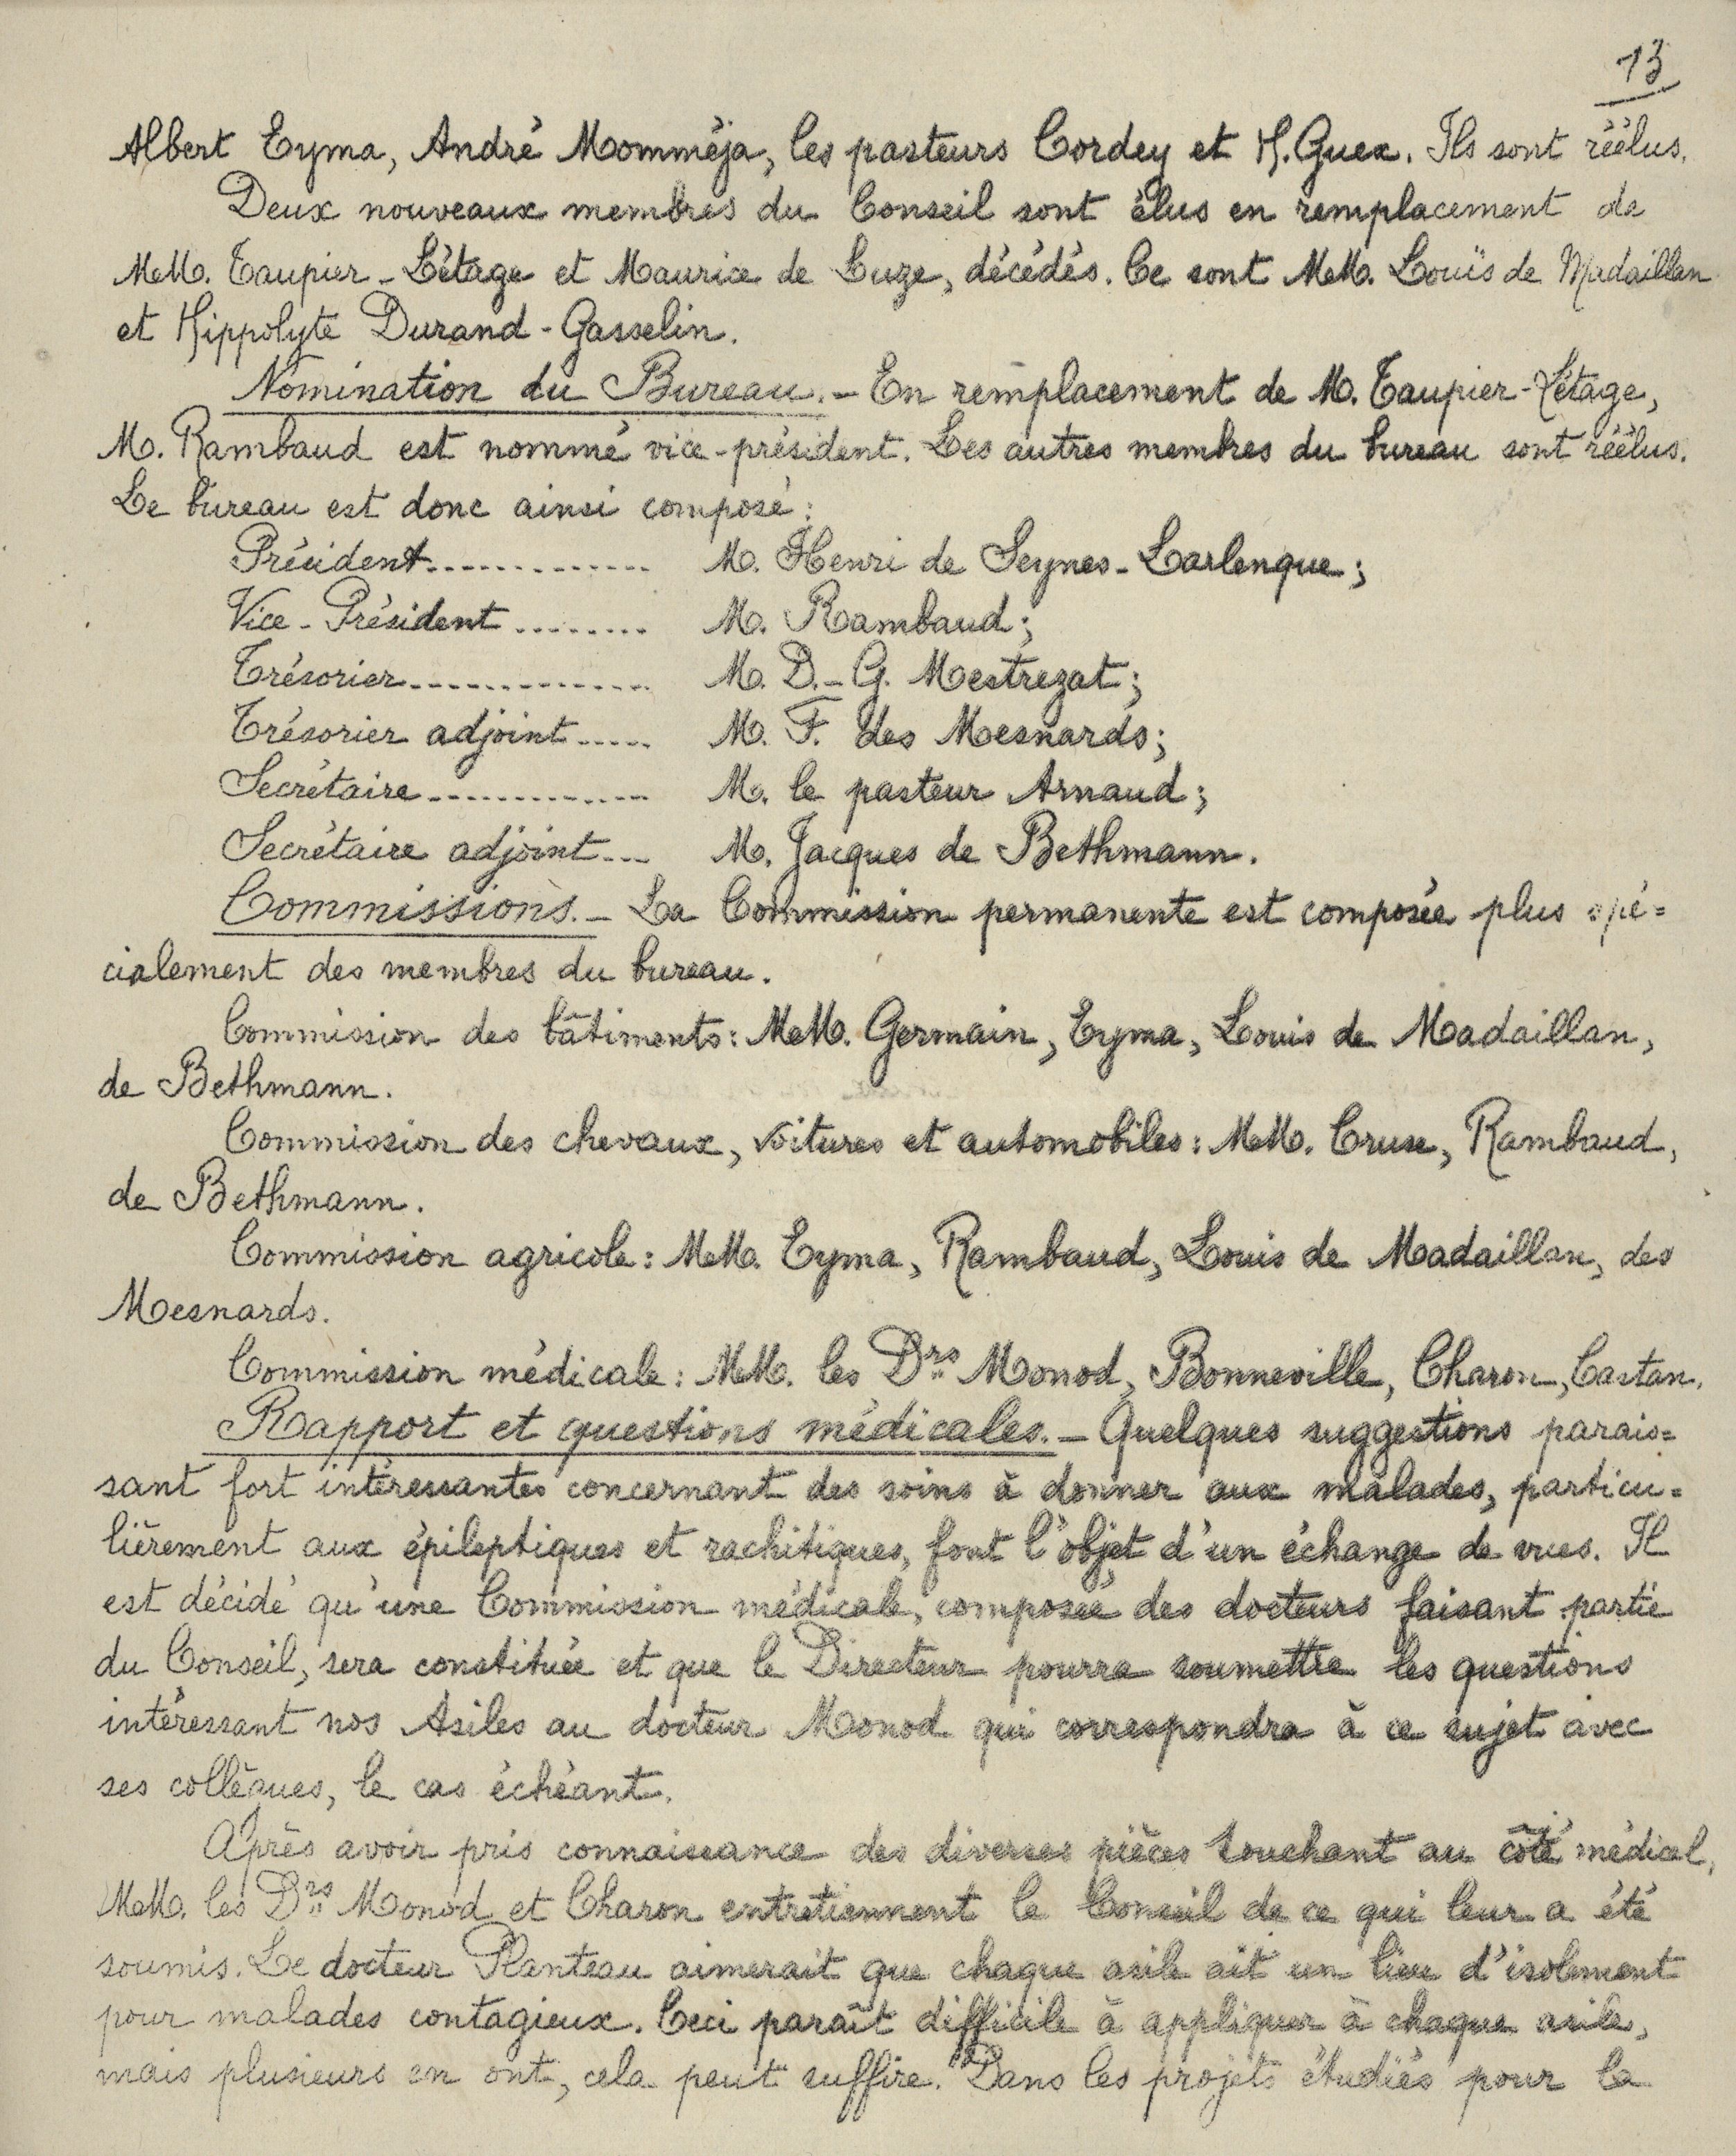 13
Albert Eyma, André Momméja, les pasteurs Cordey et H. Guex. Ils sont réélus.
Deux nouveaux membres du Conseil sont élus en remplacement de
MM. Taupier-Létage et Maurice de Luze, décédés. Ce sont MM. Louis de Madaillan
et Hippolyte Durand-Gasselin.
Nomination du Bureau. - En remplacement de M. Taupier-Létage,
M. Rambaud est nommé vice-président. Les autres membres du bureau sont réélus.
Le bureau est donc ainsi composé :
Président............. M. Henri de Seynes-Larlenque ;
Vice-Président ........ M. Rambaud ;
Trésorier.............. M. D.-G. Mestrezat ;
Trésorier adjoint..... M. F. des Mesnards ;
Secrétaire............. M. le pasteur Arnaud ;
Secrétaire adjoint... M. Jacques de Bethmann.
Commissions. - La Commission permanente est composée plus spé=
cialement des membres du bureau.
Commission des bâtiments : MM. Germain, Eyma, Louis de Madaillan,
de Bethmann.
Commission des chevaux, voitures et automobiles : MM. Cruse, Rambaud,
de Bethmann.
Commission agricole : MM. Eyma, Rambaud, Louis de Madaillan, des
Mesnards.
Commission médicale : MM. les Drs Monod, Bonneville, Charon, Castan.
Rapport et questions médicales. - Quelques suggestions parais=
sant fort intéressantes concernant des soins à donner aux malades, particu=
lièrement aux épileptiques et rachitiques, font l'objet d'un échange de vues. Il
est décidé qu'une Commission médicale, composée des docteurs faisant partie
du Conseil, sera constituée et que le Directeur pourra soumettre les questions
intéressant nos Asiles au docteur Monod qui correspondra à ce sujet avec
ses collègues, le cas échéant.
Après avoir pris connaissance des diverses pièces touchant au côté médical,
MM. les Drs Monod et Charon entretiennent le Conseil de ce qui leur a été
soumis. Le docteur Planteau aimerait que chaque asile ait un lieu d'isolement
pour malades contagieux. Ceci paraît difficile à appliquer à chaque asile,
mais plusieurs en ont, cela peut suffire. Dans les projets étudiés pour la